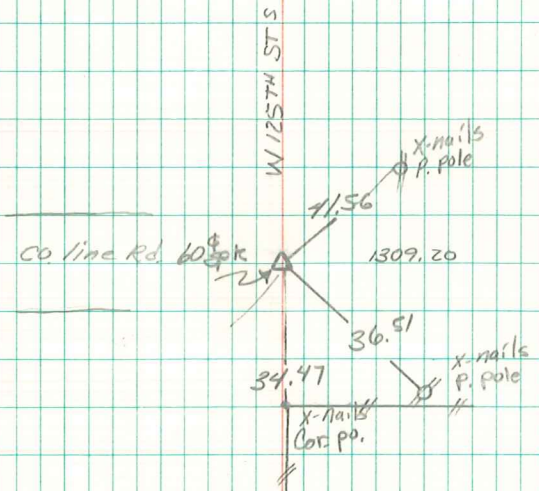 W 125TH ST S
X-nails
P. pole
41.56
Co. line Rd. 60
1309.20
36.51
X-nails
P. pole
34.47
X-nails
Cor. po.